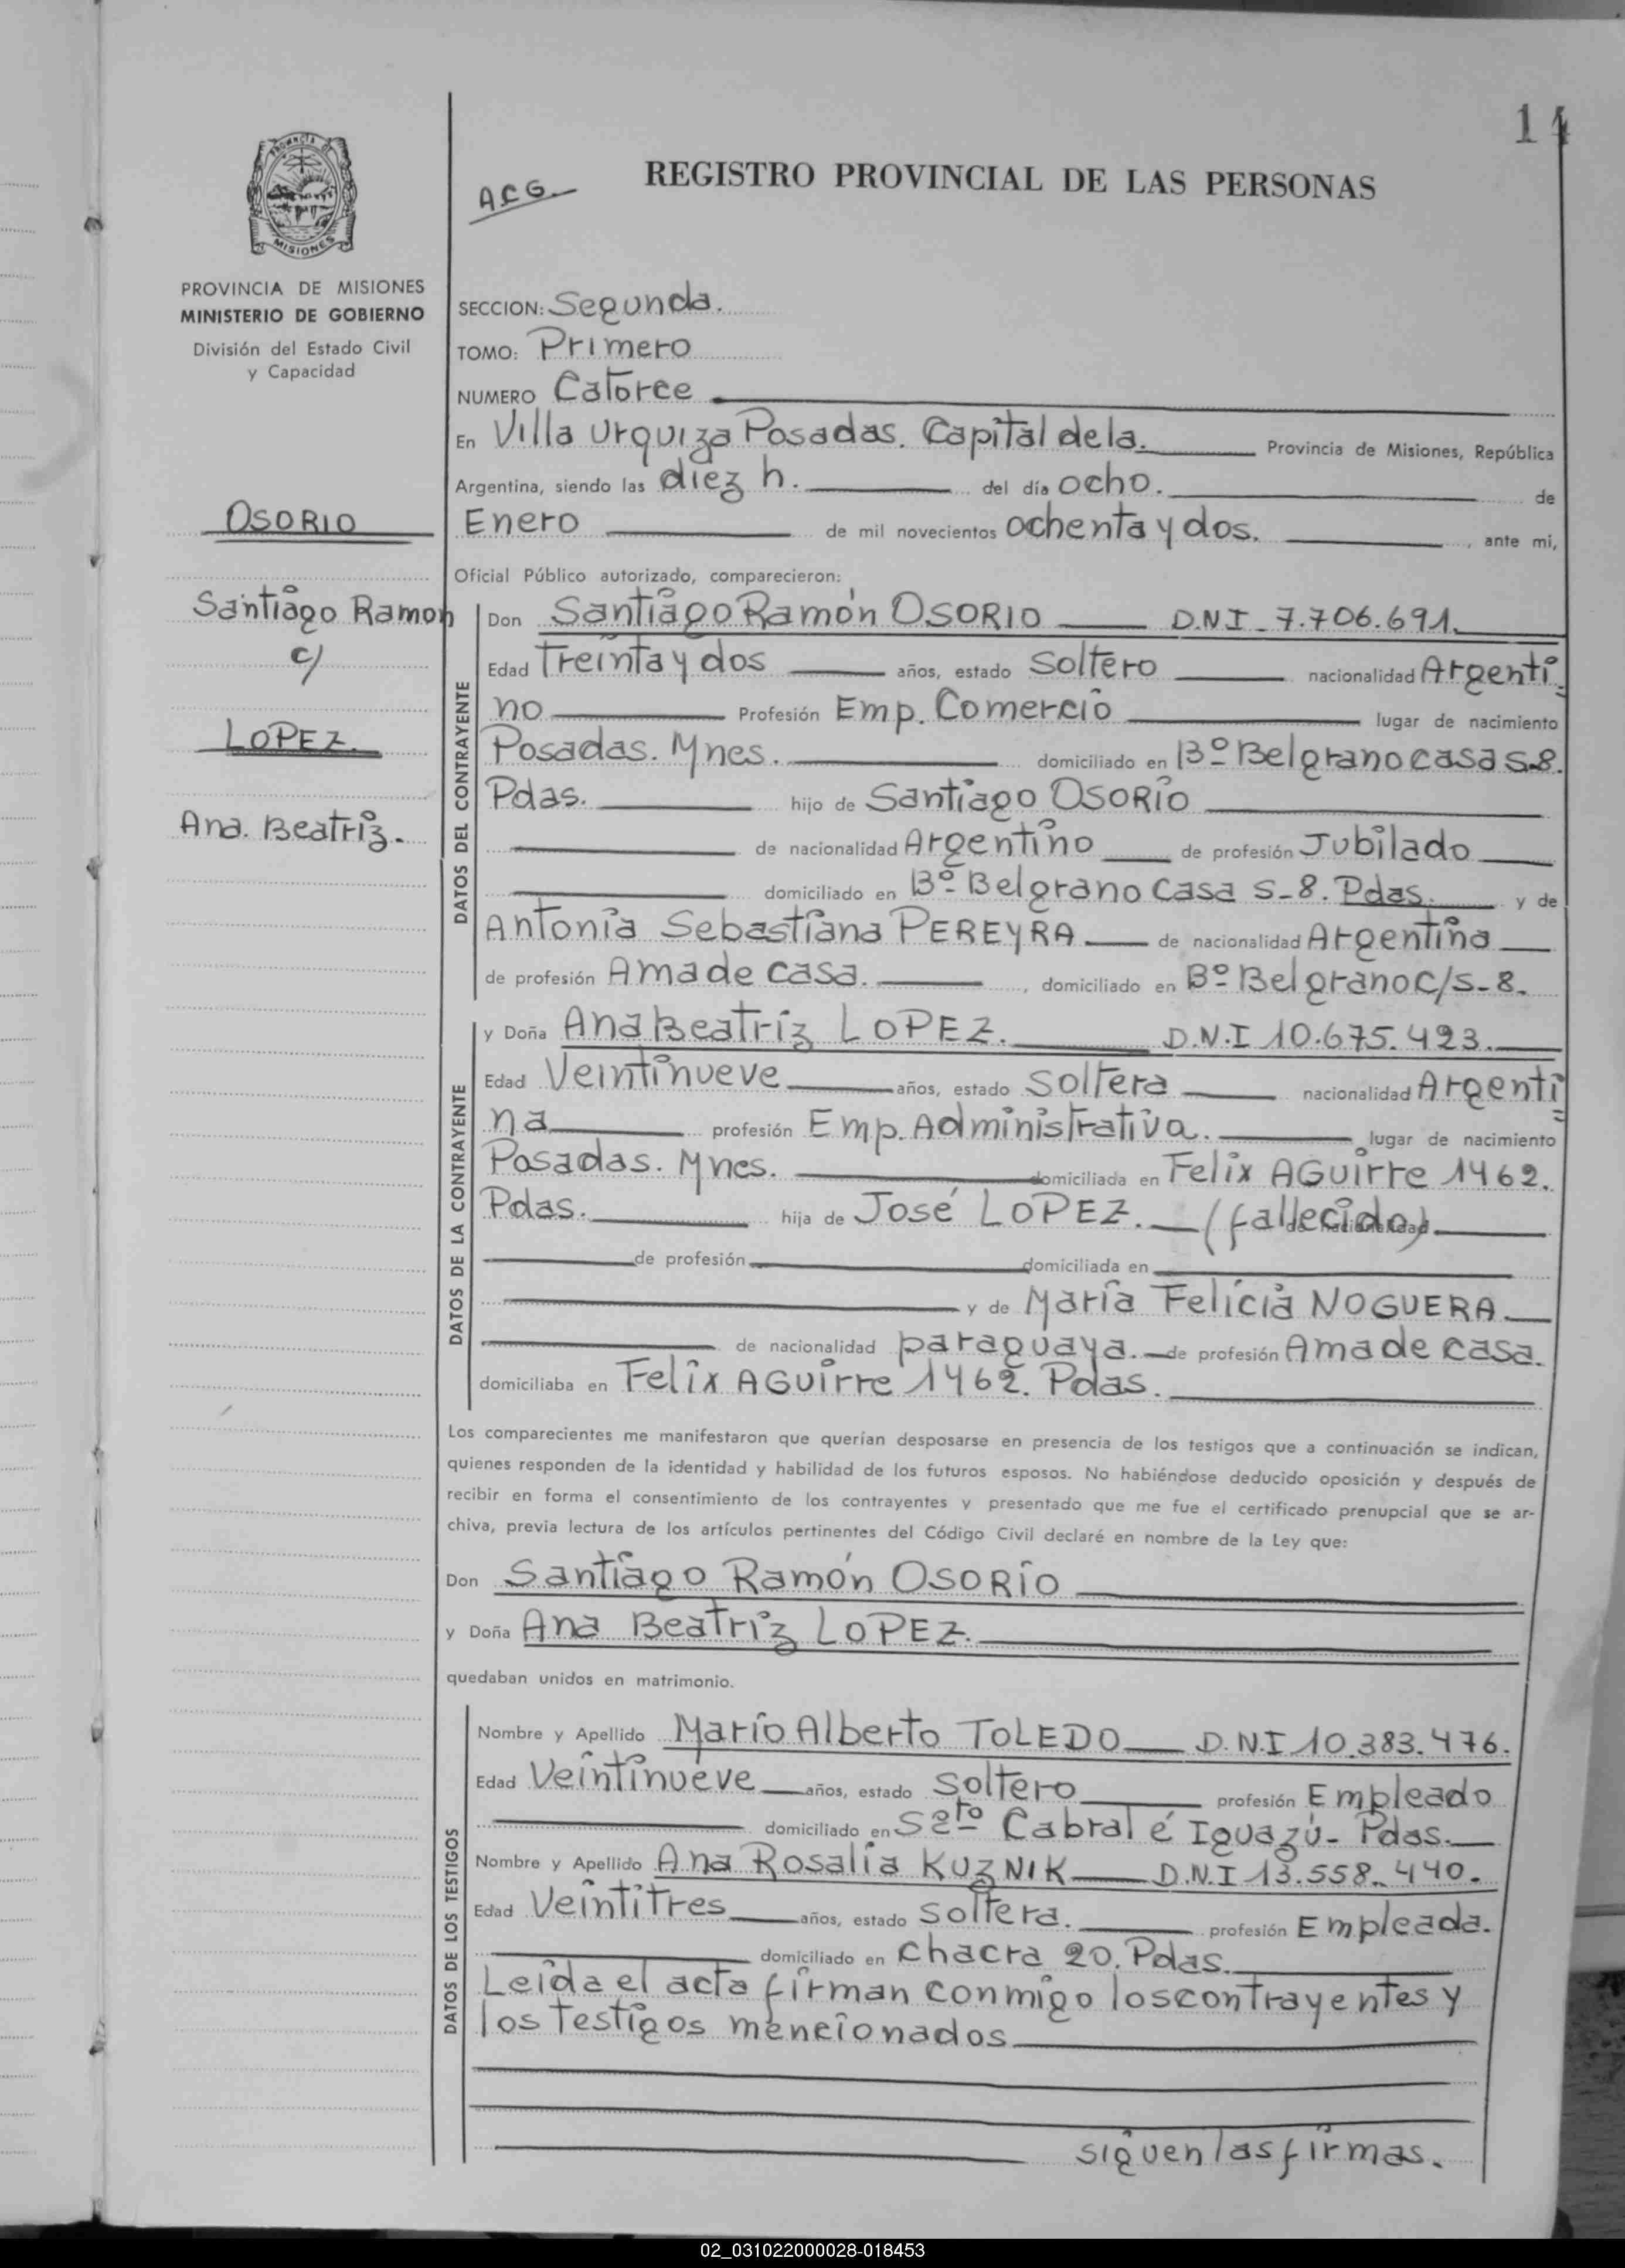 14
REGISTRO PROVINCIAL DE LAS PERSONAS
A.C.G.
PROVINCIA DE MISIONES
PROVINCIA DE MISIONES
MINISTERIO DE GOBIERNO
División del Estado Civil
y Capacidad
OSORIO
Santiago Ramon
c/
LOPEZ.
Ana. Beatriz.
SECCION: Segunda.
TOMO: Primero
NUMERO Catorce
En Villa Urquiza Posadas. Capital de la. Provincia de Misiones, República
Argentina, siendo las diez h. del día ocho. de
Enero de mil novecientos ochenta y dos. , ante mi,
Oficial Público autorizado, comparecieron:
DATOS DEL CONTRAYENTE
Don Santiago Ramón OSORIO D.N.I. 7.706.691.
Edad Treinta y dos años, estado Soltero nacionalidad Argenti=
no Profesión Emp. Comercio lugar de nacimiento
Posadas. Mnes. domiciliado en Bº Belgrano casa S-8.
Pdas. hijo de Santiago OSORIO
de nacionalidad Argentino de profesión Jubilado
domiciliado en Bº Belgrano Casa S-8. Pdas. y de
Antonia Sebastiana PEREYRA de nacionalidad Argentina
de profesión Ama de casa. , domiciliado en Bº Belgrano C/S-8.
DATOS DE LA CONTRAYENTE
y Doña Ana Beatriz LOPEZ. D.N.I 10.675.423.
Edad Veintinueve años, estado Soltera nacionalidad Argenti=
na profesión Emp. Administrativa. lugar de nacimiento
Posadas. Mnes. domiciliada en Felix AGuirre 1462.
Pdas. hija de José LOPEZ. (fallecido) de nacionalidad
de profesión domiciliada en
y de María Felicia NOGUERA
de nacionalidad paraguaya. de profesión Ama de casa.
domiciliaba en Felix AGuirre 1462. Pdas.
Los comparecientes me manifestaron que querían desposarse en presencia de los testigos que a continuación se indican,
quienes responden de la identidad y habilidad de los futuros esposos. No habiéndose deducido oposición y después de
recibir en forma el consentimiento de los contrayentes y presentado que me fue el certificado prenupcial que se ar-
chiva, previa lectura de los artículos pertinentes del Código Civil declaré en nombre de la Ley que:
Don Santiago Ramón OSORIO
y Doña Ana Beatriz LOPEZ.
quedaban unidos en matrimonio.
DATOS DE LOS TESTIGOS
Nombre y Apellido Mario Alberto TOLEDO D.N.I 10.383.476.
Edad Veintinueve años, estado Soltero profesión Empleado
domiciliado en Sgto Cabral é Iguazú- Pdas.
Nombre y Apellido Ana Rosalía KUZNIK D.N.I 13.558.440.
Edad Veintitres años, estado soltera. profesión Empleada.
domiciliado en Chacra 20. Pdas.
Leída el acta firman conmigo los contrayentes y
los testigos mencionados
siguen las firmas.
02_031022000028-018453